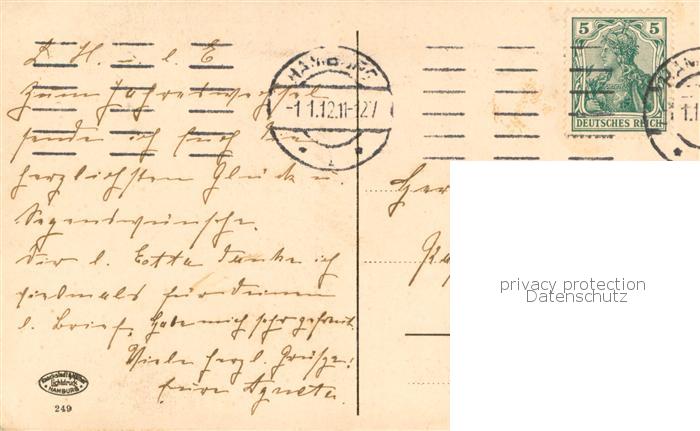 L. H. u. l. E
zum Jahreswechsel
sende ich Euch die
herzlichsten Glück u.
Segenswünsche.
Dir l. Lotta danke ich
vielmals für deinen
l. Brief, habe mich sehr gefreut.
Viele herzl. Grüsse!
Eure Agneta
HAMBURG
-1.1.12.11-12V
5 5
DEUTSCHES REICH
Her
privacy protection
Datenschutz
Lichtdruck
HAMBURG
249